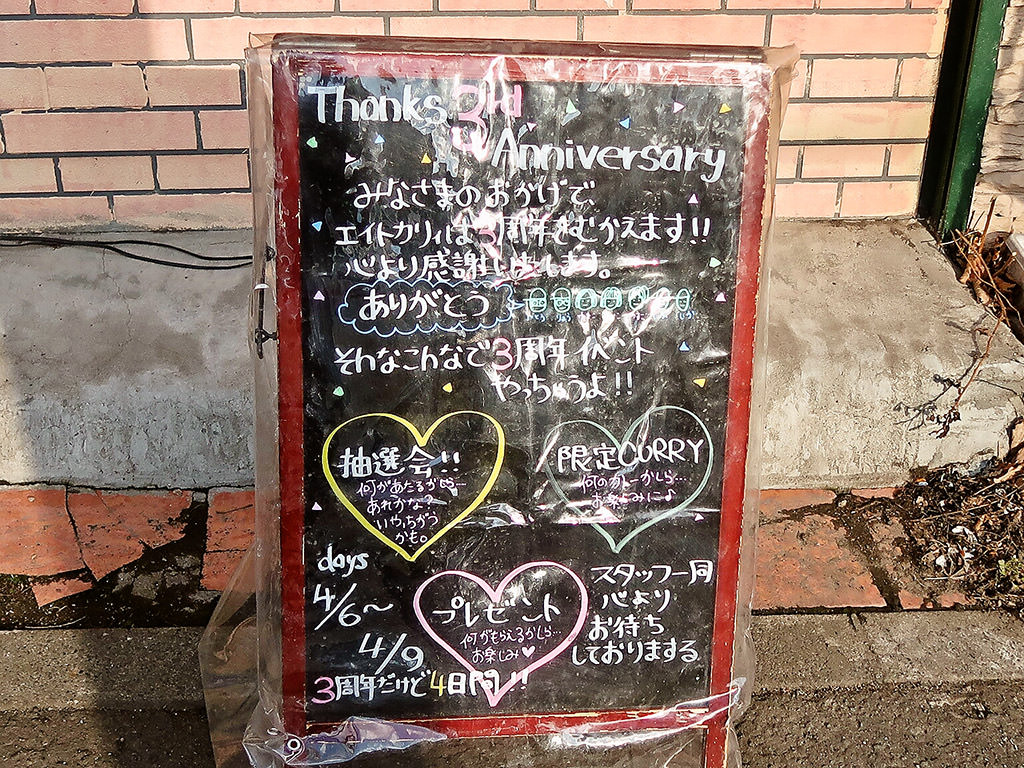 Thanks 3rd
Anniversary
みなさまのおかげで、
エイトカリィは3周年をむかえます!!
心より感謝いたします。
ありがとう
そんなこんなで3周年イベント
やっちゃうよ!!
抽選会!!
何があたるかしら…
あれかな?
いや、ちがう
かも。
限定CURRY
何のカレーかしら…
お楽しみに♪
days
4/6〜
4/9
3周年だけど4日間!!
プレゼント
何がもらえるかしら…
お楽しみ♥
スタッフ一同
心より
お待ち
しておりまする